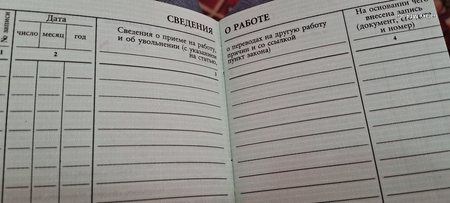 СВЕДЕНИЯ О РАБОТЕ
№ записи
Дата
число месяц год
Сведения о приеме на работу,
и об увольнении (с указанием
на статью,
о переводах на другую работу
причин и со ссылкой
пункт закона)
На основании чего
внесена запись
(документ,
и номер)
1
2
3
4